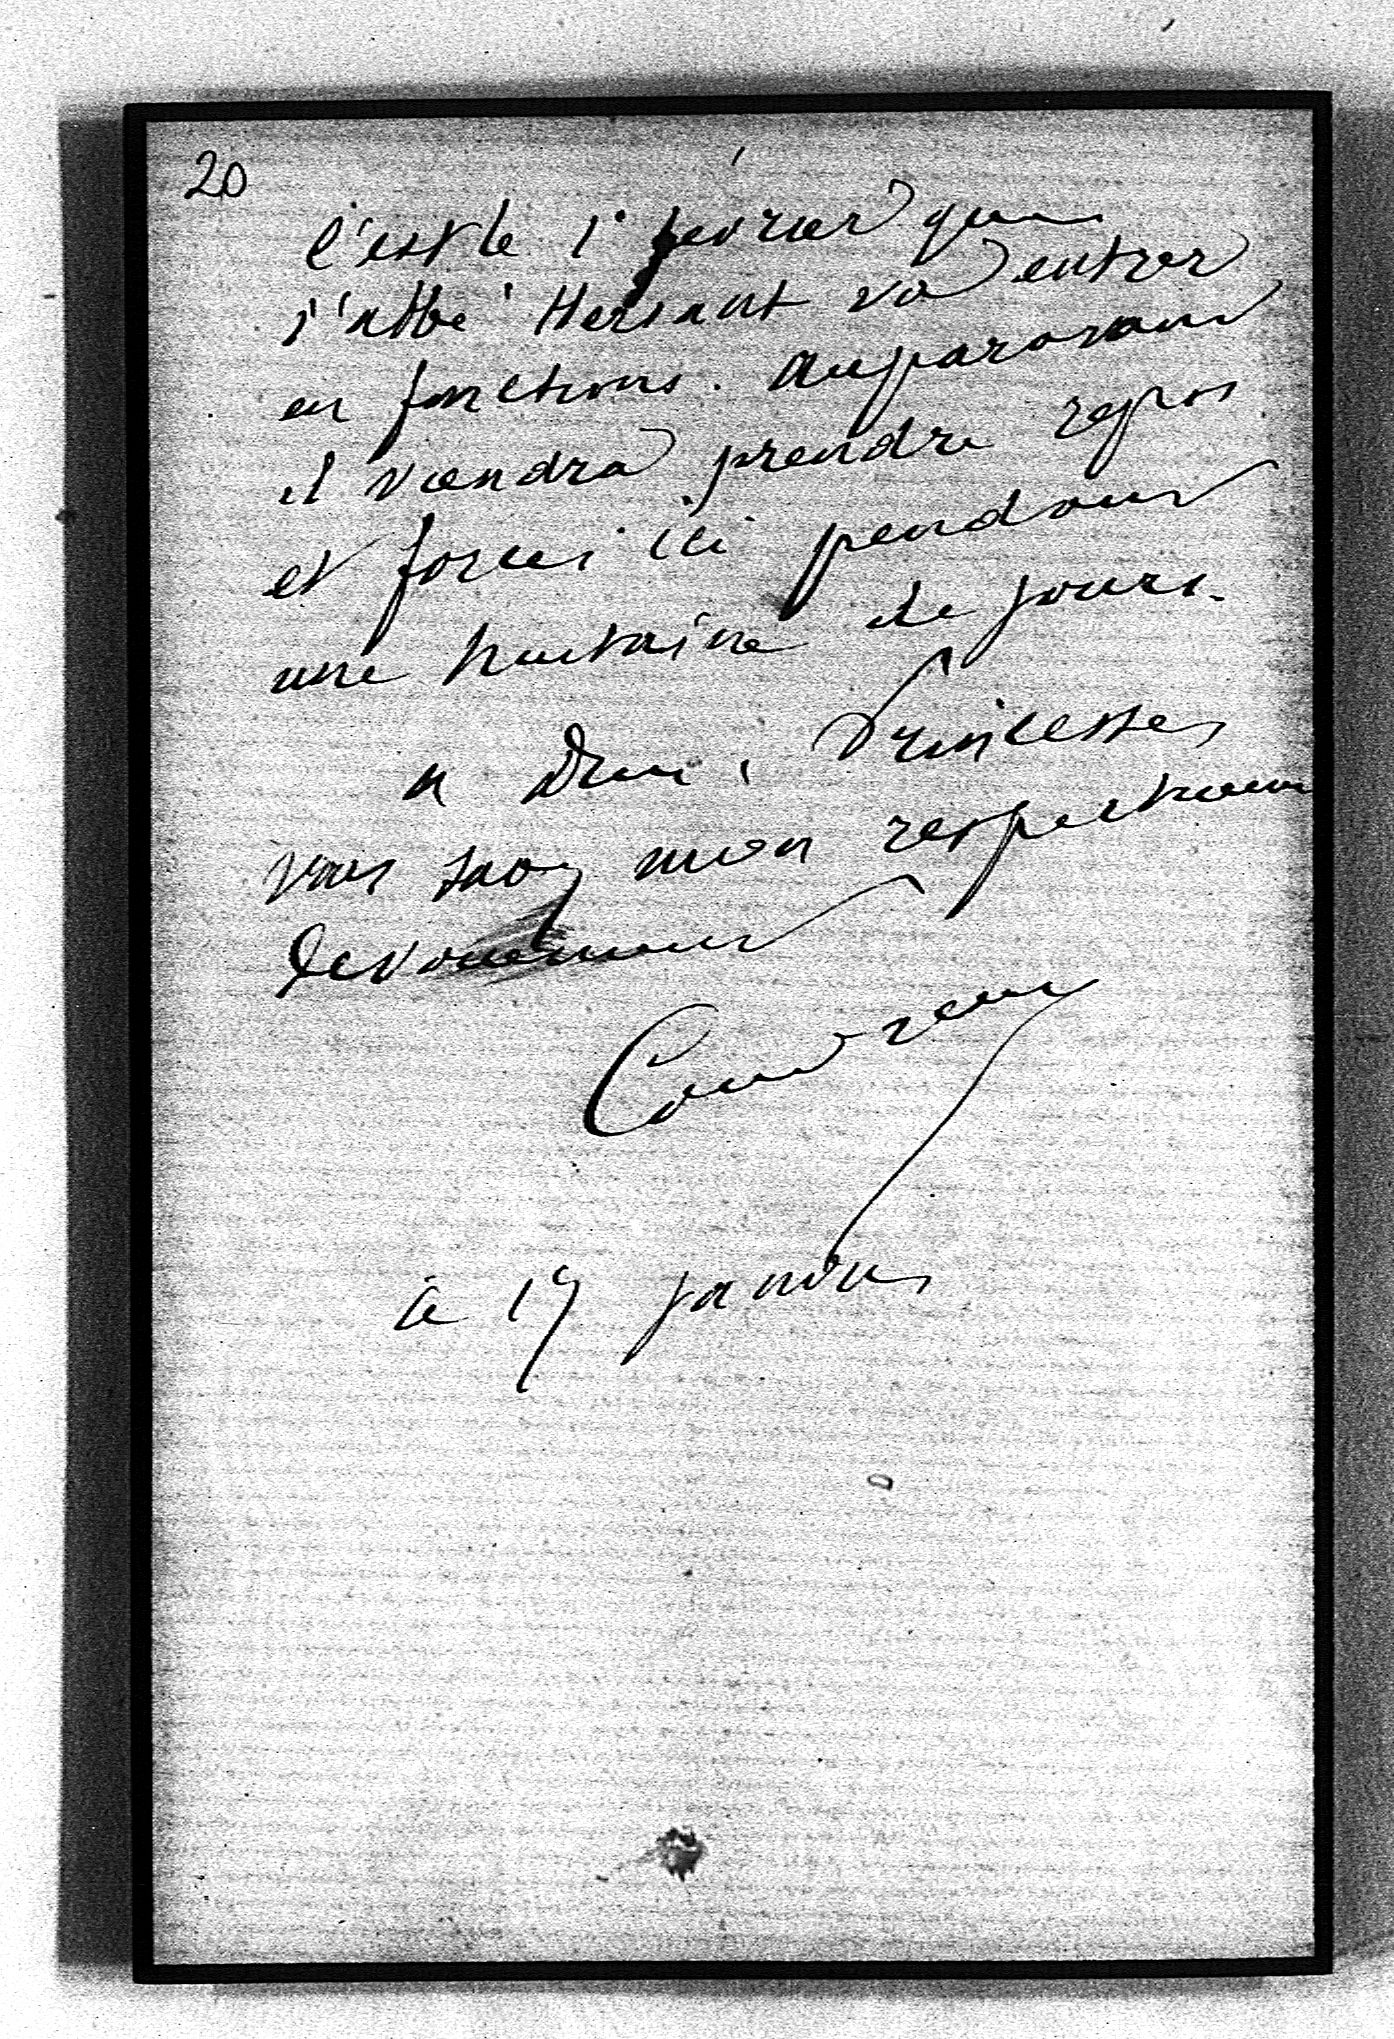 20
C'est le 1er février que
l'abbé Hersant va entrer
en fonctions. Auparavant
il viendra prendre repos
et forces ici pendant
une huitaine de jours.
A Dieu, Princesse,
vous savez mon respectueux
dévouement
ce 17 janvier